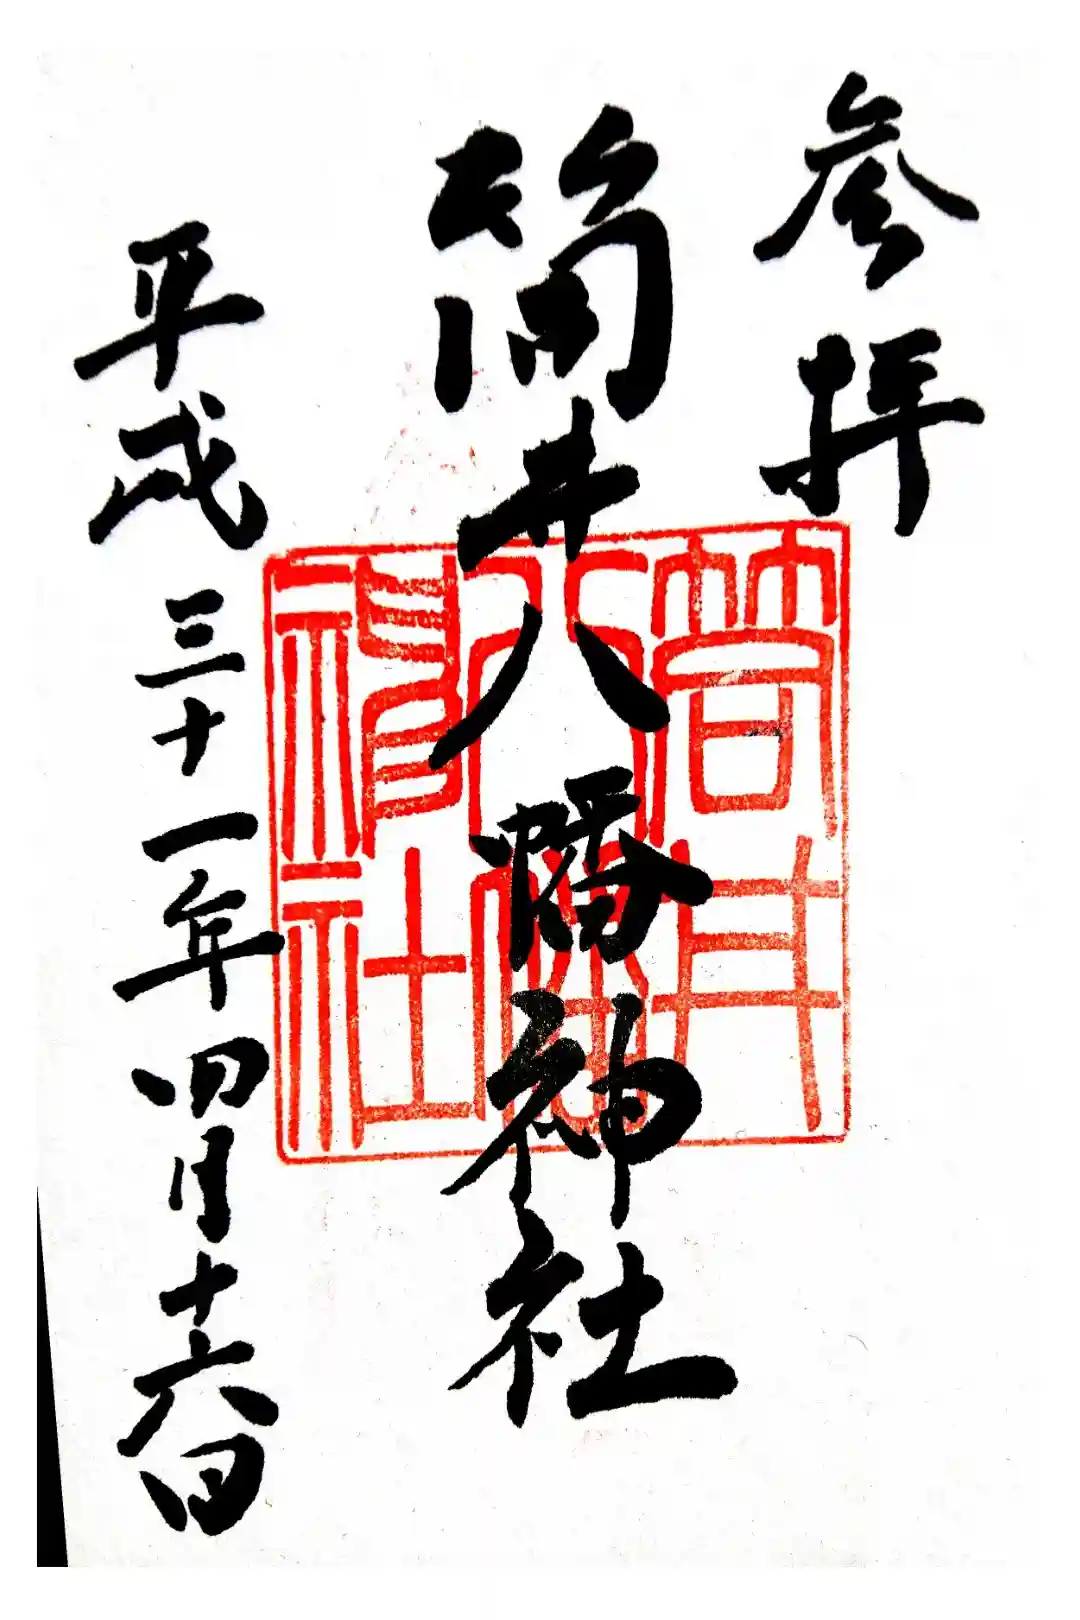 参拝
筒井八幡神社
筒井
八幡
神社
平成三十一年四月十六日